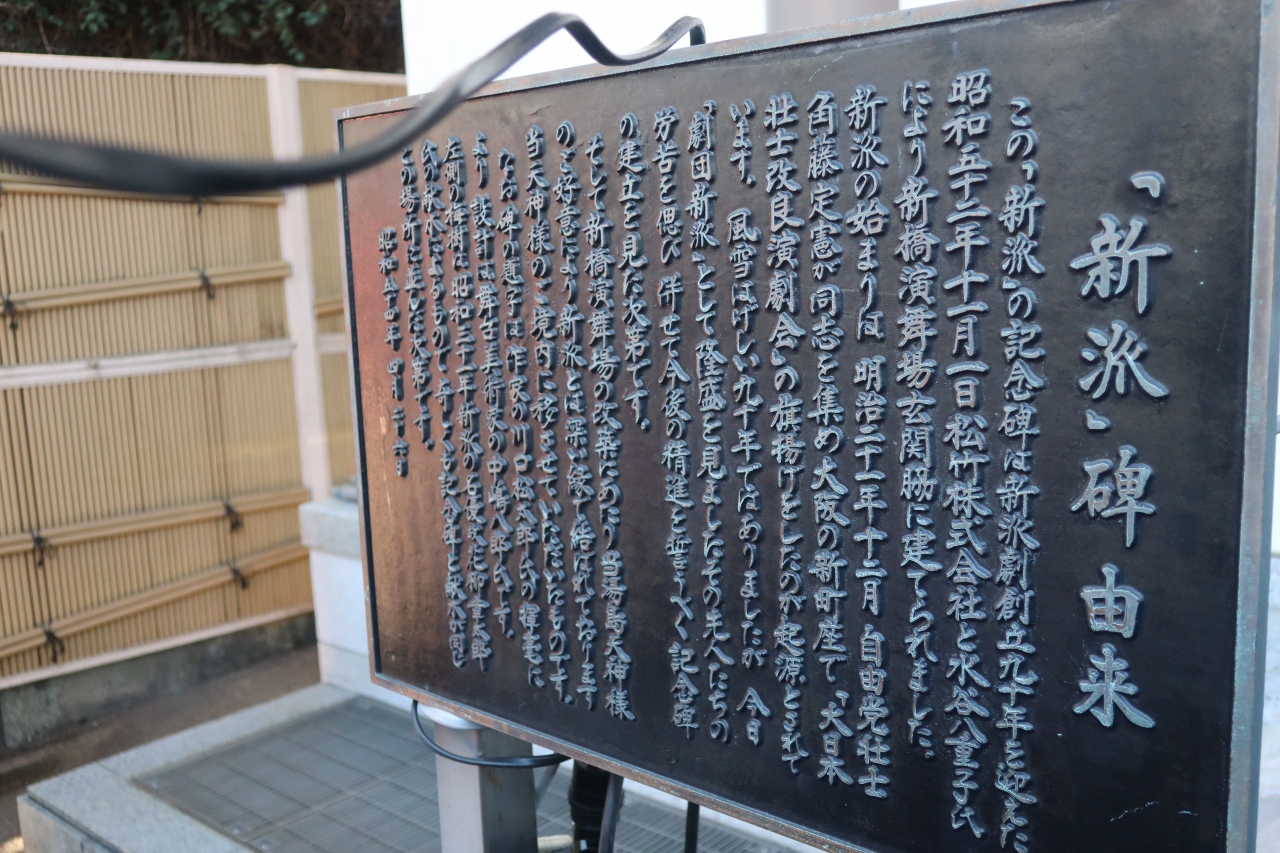 「新派」碑由来
この「新派」の記念碑は新派劇創立九十年を迎えた
昭和五十二年十一月一日松竹株式会社と水谷八重子氏
により新橋演舞場玄関脇に建てられました。
新派の始まりは 明治二十一年十二月 自由党壮士
角藤定憲が同志を集め大阪の新町座で「大日本
壮士改良演劇会」の旗揚げをしたのが起源とされて
います。 風雪はげしい九十年ではありましたが 今日
「劇団新派」として隆盛を見ましたその先人たちの
労苦を偲び 併せて今後の精進を誓うべく記念碑
の建立を見た次第です。
そして新橋演舞場の改築にあたり 当湯島天神様
のご好意により新派とは深い縁で結ばれております
当天神様のご境内に移させていただいたものです。
なお 碑の題字は 作家の川口松太郎氏の揮毫に
より 設計は舞台美術家の中嶋八郎氏です。
左側の梅樹は 昭和三十一年 新派の
献木によるもので
この場所に並びました次第です。